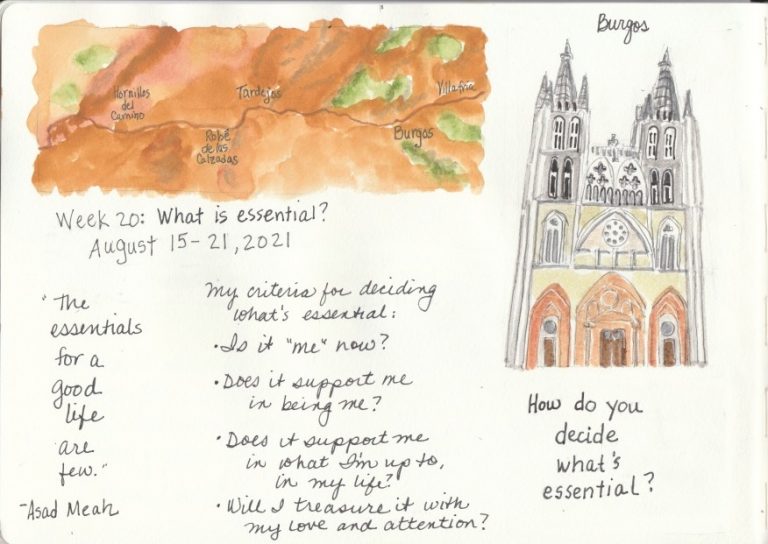 Hornillos
del
Camino
Tardejos
Robé
de las
Calzadas
Villafria
Burgos
Week 20: What is essential?
August 15-21, 2021
"The
essentials
for a
good
life
are
few."
-Asad Meah
My criteria for deciding
what's essential:
• Is it "me" now?
• Does it support me
in being me?
• Does it support me
in what I'm up to,
in my life?
• Will I treasure it with
my love and attention?
Burgos
How do you
decide
what's
essential?